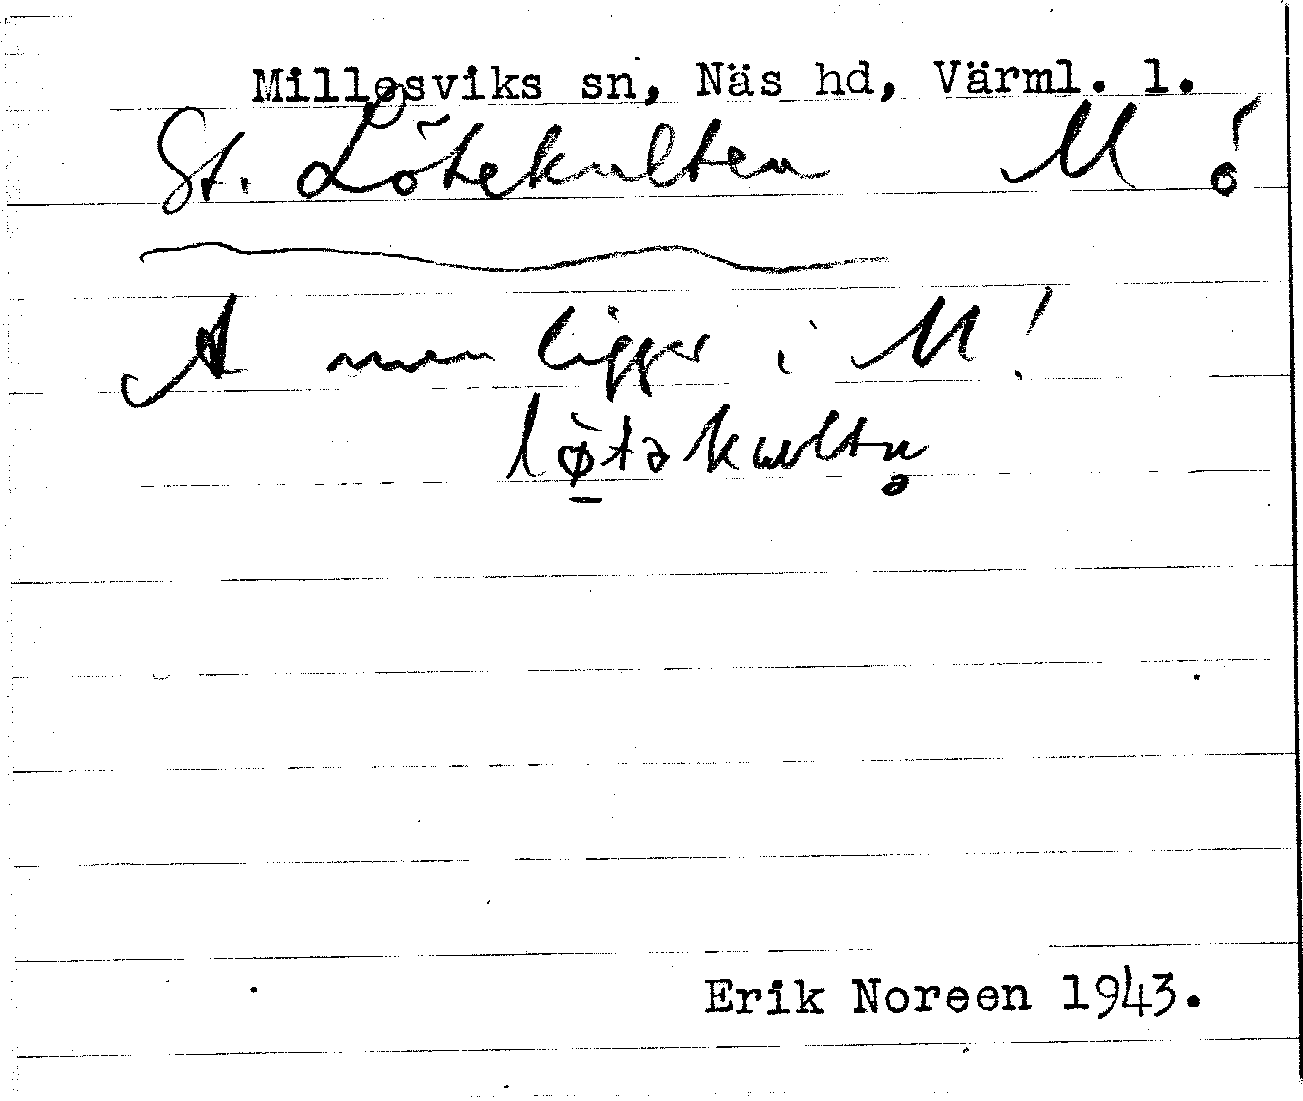 Millesviks sn, Näs hd, Värml. l.
St. Lötekulten M!
A men ligger i M!
lø̀təkultn̥
Erik Noreen 1943.